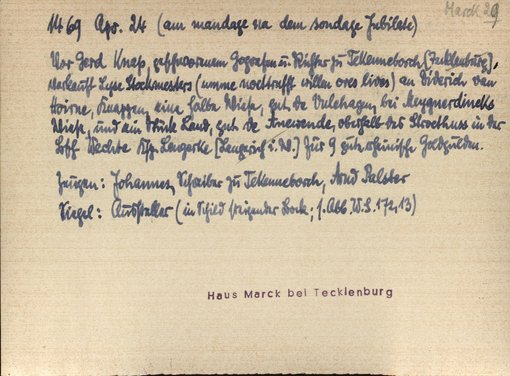 Marck 29
1469 Apr. 24 (am mandage na dem sondage Jubilate)
Vor Gerd Knap, geschworenem Gografen u. Richter zu Tekeneborch (Tecklenburg),
verkauft Lyse Stockmesters (umme noettrofft willen ores lives) an Diderich van
Horne, Knappen eine halbe Wiese, gnt. de Vulehagen, bei Meygnerdincks
Wiese, und ein Stück Land, gnt. de Anewende, oberhalb des Stroethus in der
Bsch. Wechte Ksp. Lengerke [Lengerich i. W.] für 9 gute rheinische Goldgulden.
Zeugen: Johannes, Schreiber zu Tekenneborch, Arnd Palster
Siegel: Aussteller (im Schild steigender Bock; s. Abb. W.S. 172,13)
Haus Marck bei Tecklenburg